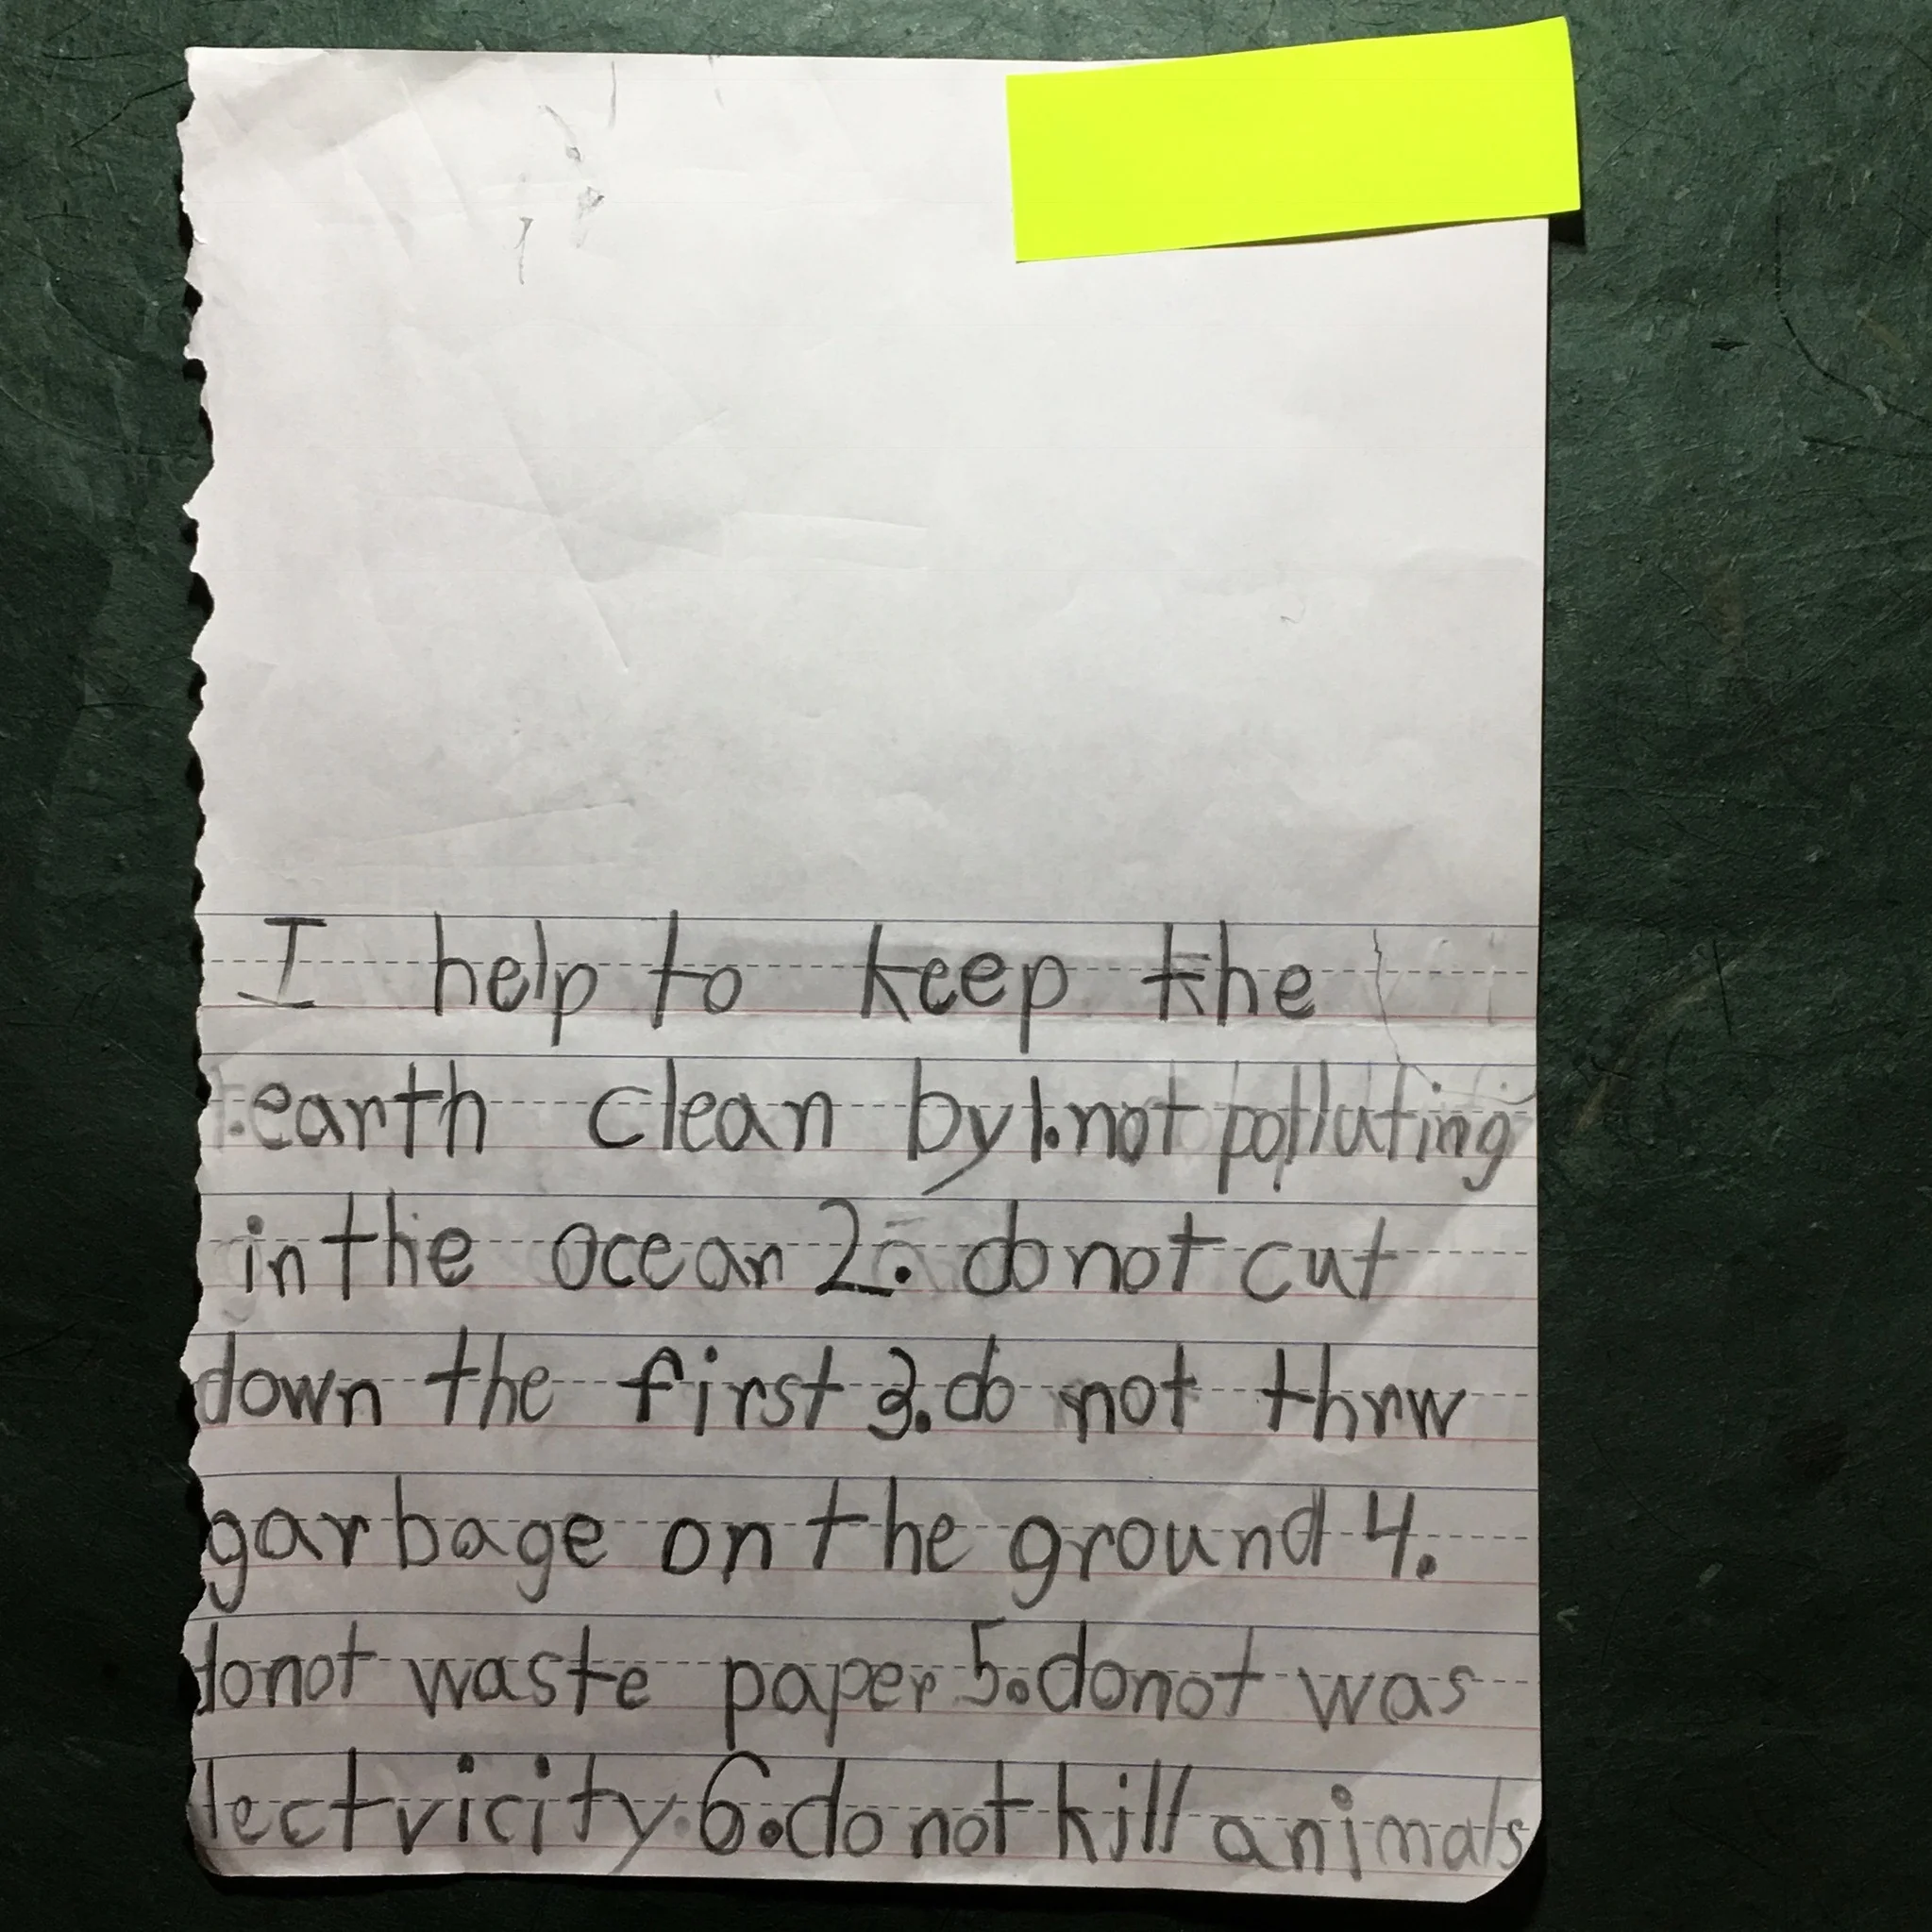 I help to keep the
earth clean by 1. not polluting
in the ocean 2. do not cut
down the first 3. do not thrw
garbage on the ground 4.
donot waste paper 5. donot was
lectricity. 6. do not kill animals